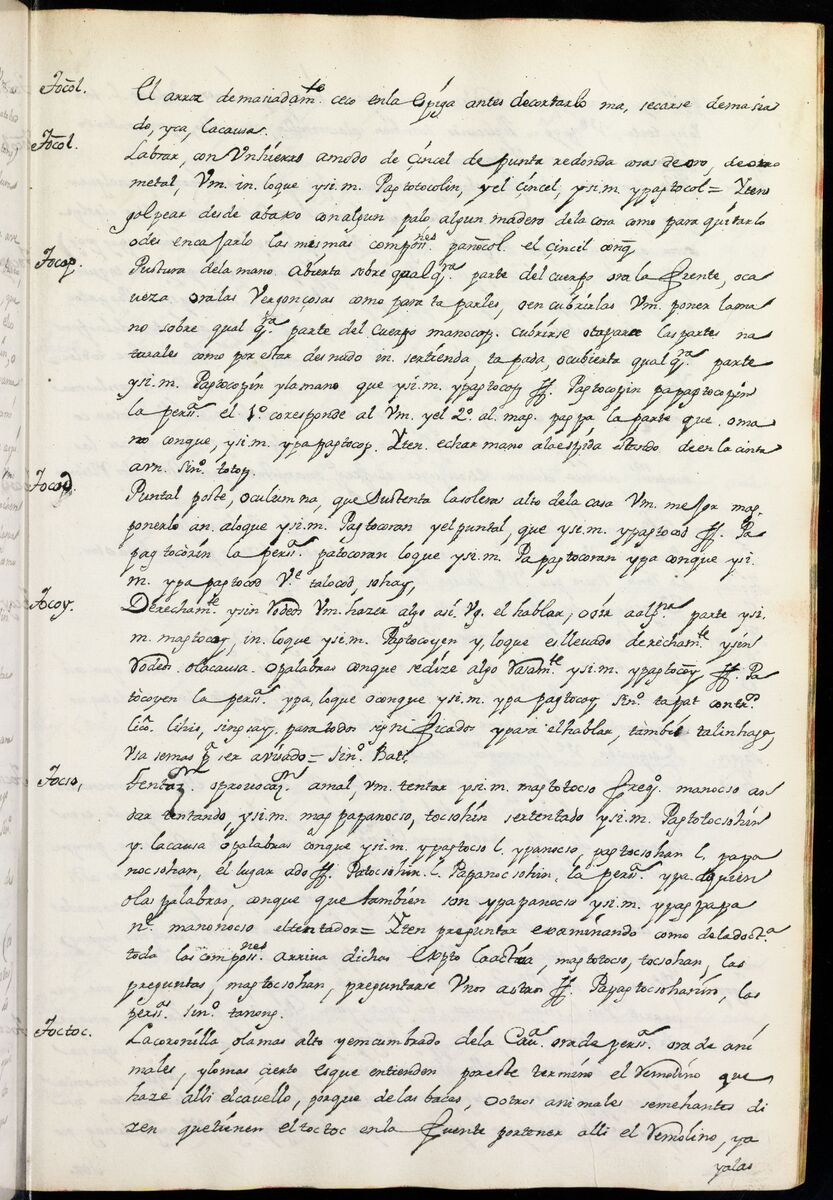 Tocol. El arroz demasiadamte. ceco enla espiga antes decortarlo ma, secarse demasia
do, yca, lacausa.
Tocol. Labrar, con Vnhierro amodo de çincel de punta redonda cosas de oro, de otro
metal, Vm. in. loque ysi.m. Pagtotocolin, y el çincel, ysi.m. ypagtocol = Yten
golpear desde abaxo conalgun palo algun madero dela cosa como para quitarlo
odes encajarlo las mesmas composnes. panocol. el çincil conq
Tocop. Pustura dela mano. Abierta sobre qualqra. parte del cuerpo ora la frente, oca
veza oralas Vergonçosas como para taparles, o en cubrirlas Vm. poner lama
no sobre qual qra. parte del cuerpo manocop. cubrirse otapara las partes na
turales como por estar desnudo in. sertienda, tapada, ocubierta qualqra. parte
ysi.m. Pagtocopin ylamano que ysi.m. ypagtocop ff. Pagtocopin papagtocopin
la persa. el 1º. coresponde al Vm. yel 2º. al. mag. pagpa la parte que oma
no conque, ysi.m. ypapagtocop. Yten. echar mano alaespida estando deenla cinta
am. Sinº. totop.
Tocod. Puntal poste, oculumna, que Sustenta lasoleras alto dela casa Vm. mejor mag.
ponerlo an. aloque ysi.m. Pagtocoran yelpuntal, que ysi.m. ypagtocod ff. Pa
pagtocorin la persa. patocoran loque ysi.m. Papagtocoran ypa conque ysi.
m. ypapagtocod Ve. talocod, sohay,
Tocoy. Derechamte. ysin Rodeos Vm. hazer algo asi. Vg. el hablar, oir aalgna. parte ysi.
m. magtocoy, in. loque ysi.m. Pagtocoyen y, loque esllevado derechamte. ysin
Rodeos olacausa opalabras conque sedize algo Rasamte. ysi.m. ypagtocoy ff. Pa
tocoyen la persa. ypa, loque oconque ysi.m. ypapagtocoy Sinº. tapat contra.
lico. lihis, singsay, para todos significados ypara elhablar, tambiē talinhaga,
Vsa semas p ser avisado = Sinº. Bati.
Tocso, tentaçn. oprovocaçn. amal, vm. tentar ysi.m. magtotocso freqº. manocso an
dar tentando, ysi.m. mag papanocso, tocsohin sertentado ysi.m. Pagtotocsohin
y. lacausa opalabras conque ysi.m. ypagtocso l. ypanocso, pagtocsohan l. pagpa
nocsohan, el lugar ado ff. Patocsohin. l. Papanocsohin, la persa. ypa. aquien
olas palabras, conque que tambien son ypapanocso ysi.m. ypagpapa
nº. manonocso eltentador = Yten preguntar examinando como deladocta.
toda las composnes. arriva dichas expto laactiva, magtotocso, tocsohan, las
preguntas, magtocsohan, preguntarse Vnos aotros ff. Papagtocsohanin, las
persas. Sinº. tanong.
Toctoc. Lacoronilla, olamas alto yemcumbrado dela Caua. orade persa. ora de ani
males, ylomas çierto esque entienden poreste termino el Remolino que
haze alli elcavello, porque delas bacas, ootros animales semehantes di
zen quetienen eltoctoc enla frente portener alli el Remolino, ya
yalas